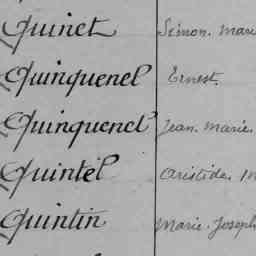 Quinet Simon. Marie
Quinquenel Ernest.
Quinquenel Jean. Marie.
Quintel Aristide.
Quintin Marie. Joseph